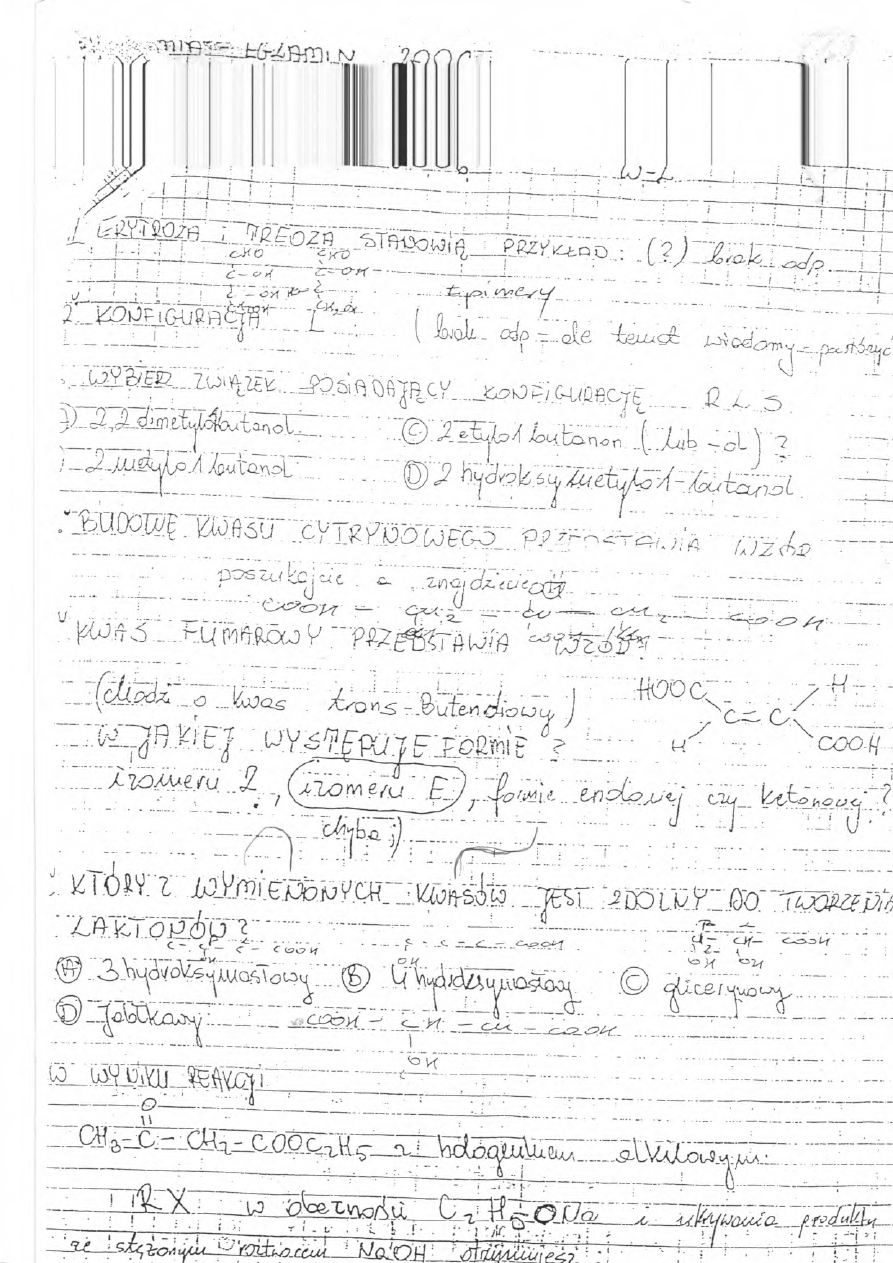 EGZAMIN 2000
W-L
1 ERYTROZA i TREOZA STANOWIĄ PRZYKŁAD: (?) brak odp.
CHO CHO
C-OH C-OH
epimery
2 KONFIGURACJA L (brak odp - ale temat wiadomy - powtórzyć
WYBIERZ ZWIĄZEK POSIADAJĄCY KONFIGURACJĘ R L S
) 2,2 dimetylo1butanol (C) 2 etylo1 butanon (lub -ol) ?
) 2 metylo 1 butanol (D) 2 hydroksymetylo 1-butanol
BUDOWĘ KWASU CYTRYNOWEGO PRZEDSTAWIA WZÓR
poszukajcie a znajdziecie
COOH - CH2 - - CH2 - COOH
KWAS FUMAROWY PRZEDSTAWIA WZÓR?
(chodzi o kwas trans-Butendiowy)
HOOC H
C=C
H COOH
W JAKIEJ WYSTĘPUJE FORMIE ?
izomeru Z, izomeru E, formie endowej czy ketonowej ?
chyba ;)
KTÓRY Z WYMIENONYCH KWASÓW JEST ZDOLNY DO TWORZENIA
LAKTONÓW?
(A) 3 hydroksymasłowy (B) 4 hydroksymasłowy (C) glicerynowy
(D) Jabłkowy COOH - CH - CH - COOH
OH
W WYNIKU REAKCJI
O
CH3-C-CH2-COOC2H5 z halogenkiem alkilowym
RX w obecności C2H5ONa i ogrzewania produktu
ze stężonym roztworem NaOH otrzymujesz